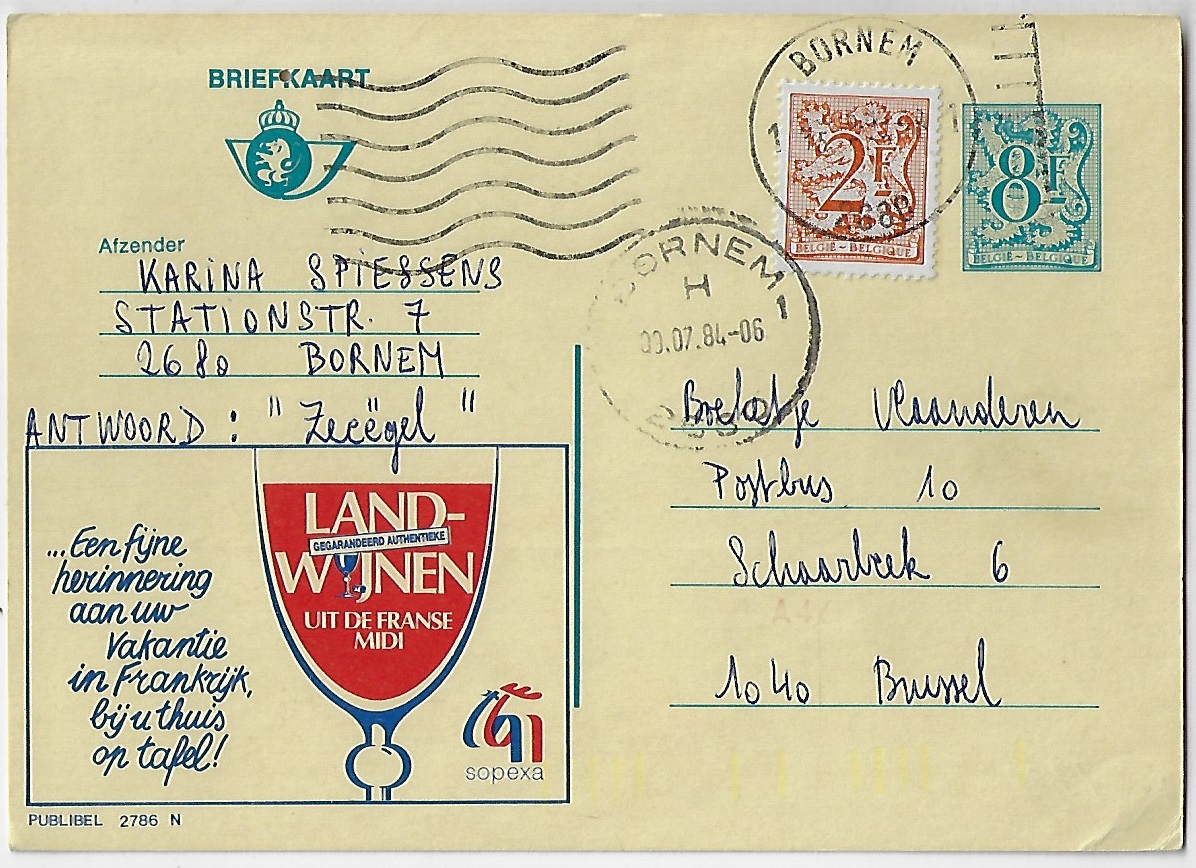 BRIEFKAART
BORNEM
1 1
2680
2F
BELGIË ~ BELGIQUE
8F
BELGIË ~ BELGIQUE
BORNEM 1
H
.07.84-06
Afzender
KARINA SPIESSENS
STATIONSTR. 7
2680 BORNEM
ANTWOORD : " Zeeëgel "
Vlaanderen
Postbus 10
Schaarbeek 6
1040 Brussel
...Een fijne
herinnering
aan uw
vakantie
in Frankrijk,
bij u thuis
op tafel!
LAND-
GEGARANDEERD AUTHENTIEKE
WIJNEN
UIT DE FRANSE
MIDI
sopexa
PUBLIBEL 2786 N